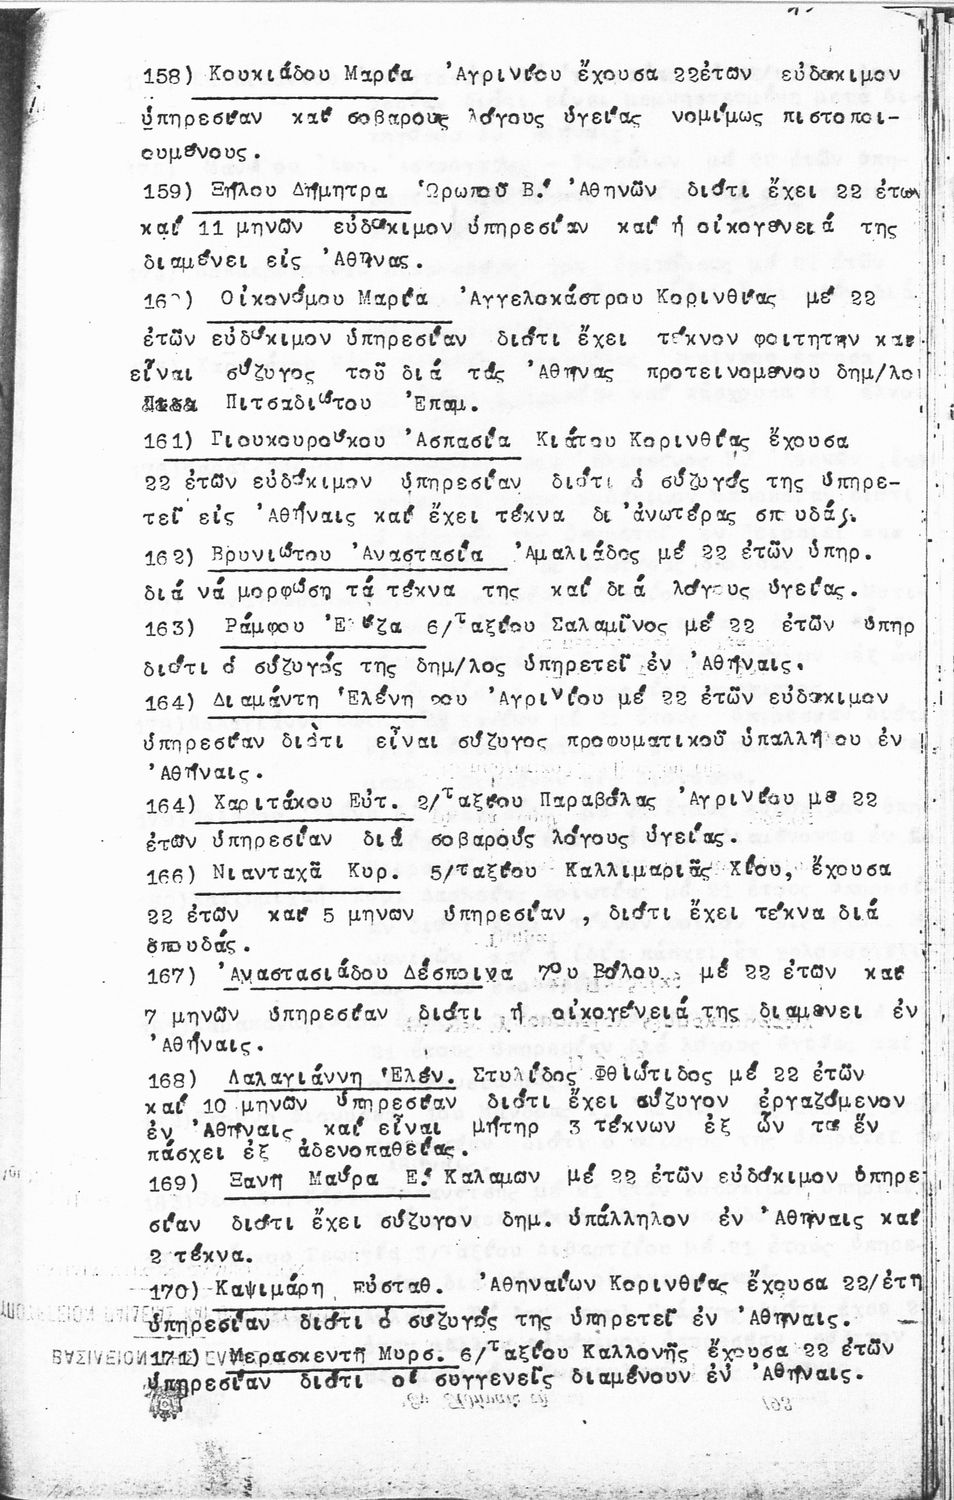 158) Κουκιάδου Μαρία Ἀγρινίου ἔχουσα 22ἐτῶν εὐδόκιμον
ὑπηρεσίαν καί σοβαρούς λόγους ὑγείας νομίμως πιστοποι-
ουμένους.
159) Ξήλου Δήμητρα Ὠρωποῦ Β.΄ Ἀθηνῶν διότι ἔχει 22 ἐτῶν
καί 11 μηνῶν εὐδόκιμον ὑπηρεσίαν καί ἡ οἰκογένειά της
διαμένει εἰς Ἀθήνας.
160) Οἰκονόμου Μαρία Ἀγγελοκάστρου Κορινθίας μέ 22
ἐτῶν εὐδόκιμον ὑπηρεσίαν διότι ἔχει τέκνον φοιτητήν καί
εἶναι σύζυγος τοῦ διά τάς Ἀθήνας προτεινομένου δημ/λου
Πιτσαδιώτου Ἐπαμ.
161) Γιουκουρούκου Ἀσπασία Κιάτου Κορινθίας ἔχουσα
22 ἐτῶν εὐδόκιμον ὑπηρεσίαν διότι ὁ σύζυγός της ὑπηρε-
τεῖ εἰς Ἀθήναις καί ἔχει τέκνα δι΄ἀνωτέρας σπουδάς.
162) Βρυνιώτου Ἀναστασία Ἀμαλιάδος μέ 22 ἐτῶν ὑπηρ.
διά νά μορφώση τά τέκνα της καί διά λόγους ὑγείας.
163) Ράμφου 6/ταξίου Σαλαμῖνος μέ 22 ἐτῶν ὑπηρ
διότι ὁ σύζυγός της δημ/λος ὑπηρετεῖ ἐν Ἀθήναις.
164) Διαμάντη Ἑλένη Ἀγρινίου μέ 22 ἐτῶν εὐδόκιμον
ὑπηρεσίαν διότι εἶναι σύζυγος προφυματικοῦ ὑπαλλήλου ἐν
Ἀθήναις.
164) Χαριτάκου Εὐτ. 2/ταξίου Παραβόλας Ἀγρινίου μέ 22
ἐτῶν ὑπηρεσίαν διά σοβαρούς λόγους ὑγείας.
166) Νιανταχᾶ Κυρ. 5/ταξίου Καλλιμαριᾶς Χίου, ἔχουσα
22 ἐτῶν καί 5 μηνῶν ὑπηρεσίαν, διότι ἔχει τέκνα διά
σπουδάς.
167) Ἀναστασιάδου Δέσποινα 7ου Βόλου μέ 22 ἐτῶν καί
7 μηνῶν ὑπηρεσίαν διότι ἡ οἰκογένειά της διαμένει ἐν
Ἀθήναις.
168) Λαλαγιάννη Ἑλέν. Στυλίδος Φθιώτιδος μέ 22 ἐτῶν
καί 10 μηνῶν ὑπηρεσίαν διότι ἔχει σύζυγον ἐργαζόμενον
ἐν Ἀθήναις καί εἶναι μήτηρ 3 τέκνων ἐξ ὧν τό ἕν
πάσχει ἐξ ἀδενοπαθείας.
169) Ξανῆ Μαύρα Ε.΄ Καλαμῶν μέ 22 ἐτῶν εὐδόκιμον ὑπηρε
σίαν διότι ἔχει σύζυγον δημ. ὑπάλληλον ἐν Ἀθήναις καί
2 τέκνα.
170) Καψιμάρη Εὐσταθ. Ἀθηναίων Κορινθίας ἔχουσα 22/ἐτῆ
ὑπηρεσίαν διότι ὁ σύζυγός της ὑπηρετεῖ ἐν Ἀθήναις.
171) Μερασκεντῆ Μυρσ. 6/ταξίου Καλλονῆς ἔχουσα 22 ἐτῶν
ὑπηρεσίαν διότι οἱ συγγενεῖς διαμένουν ἐν Ἀθήναις.